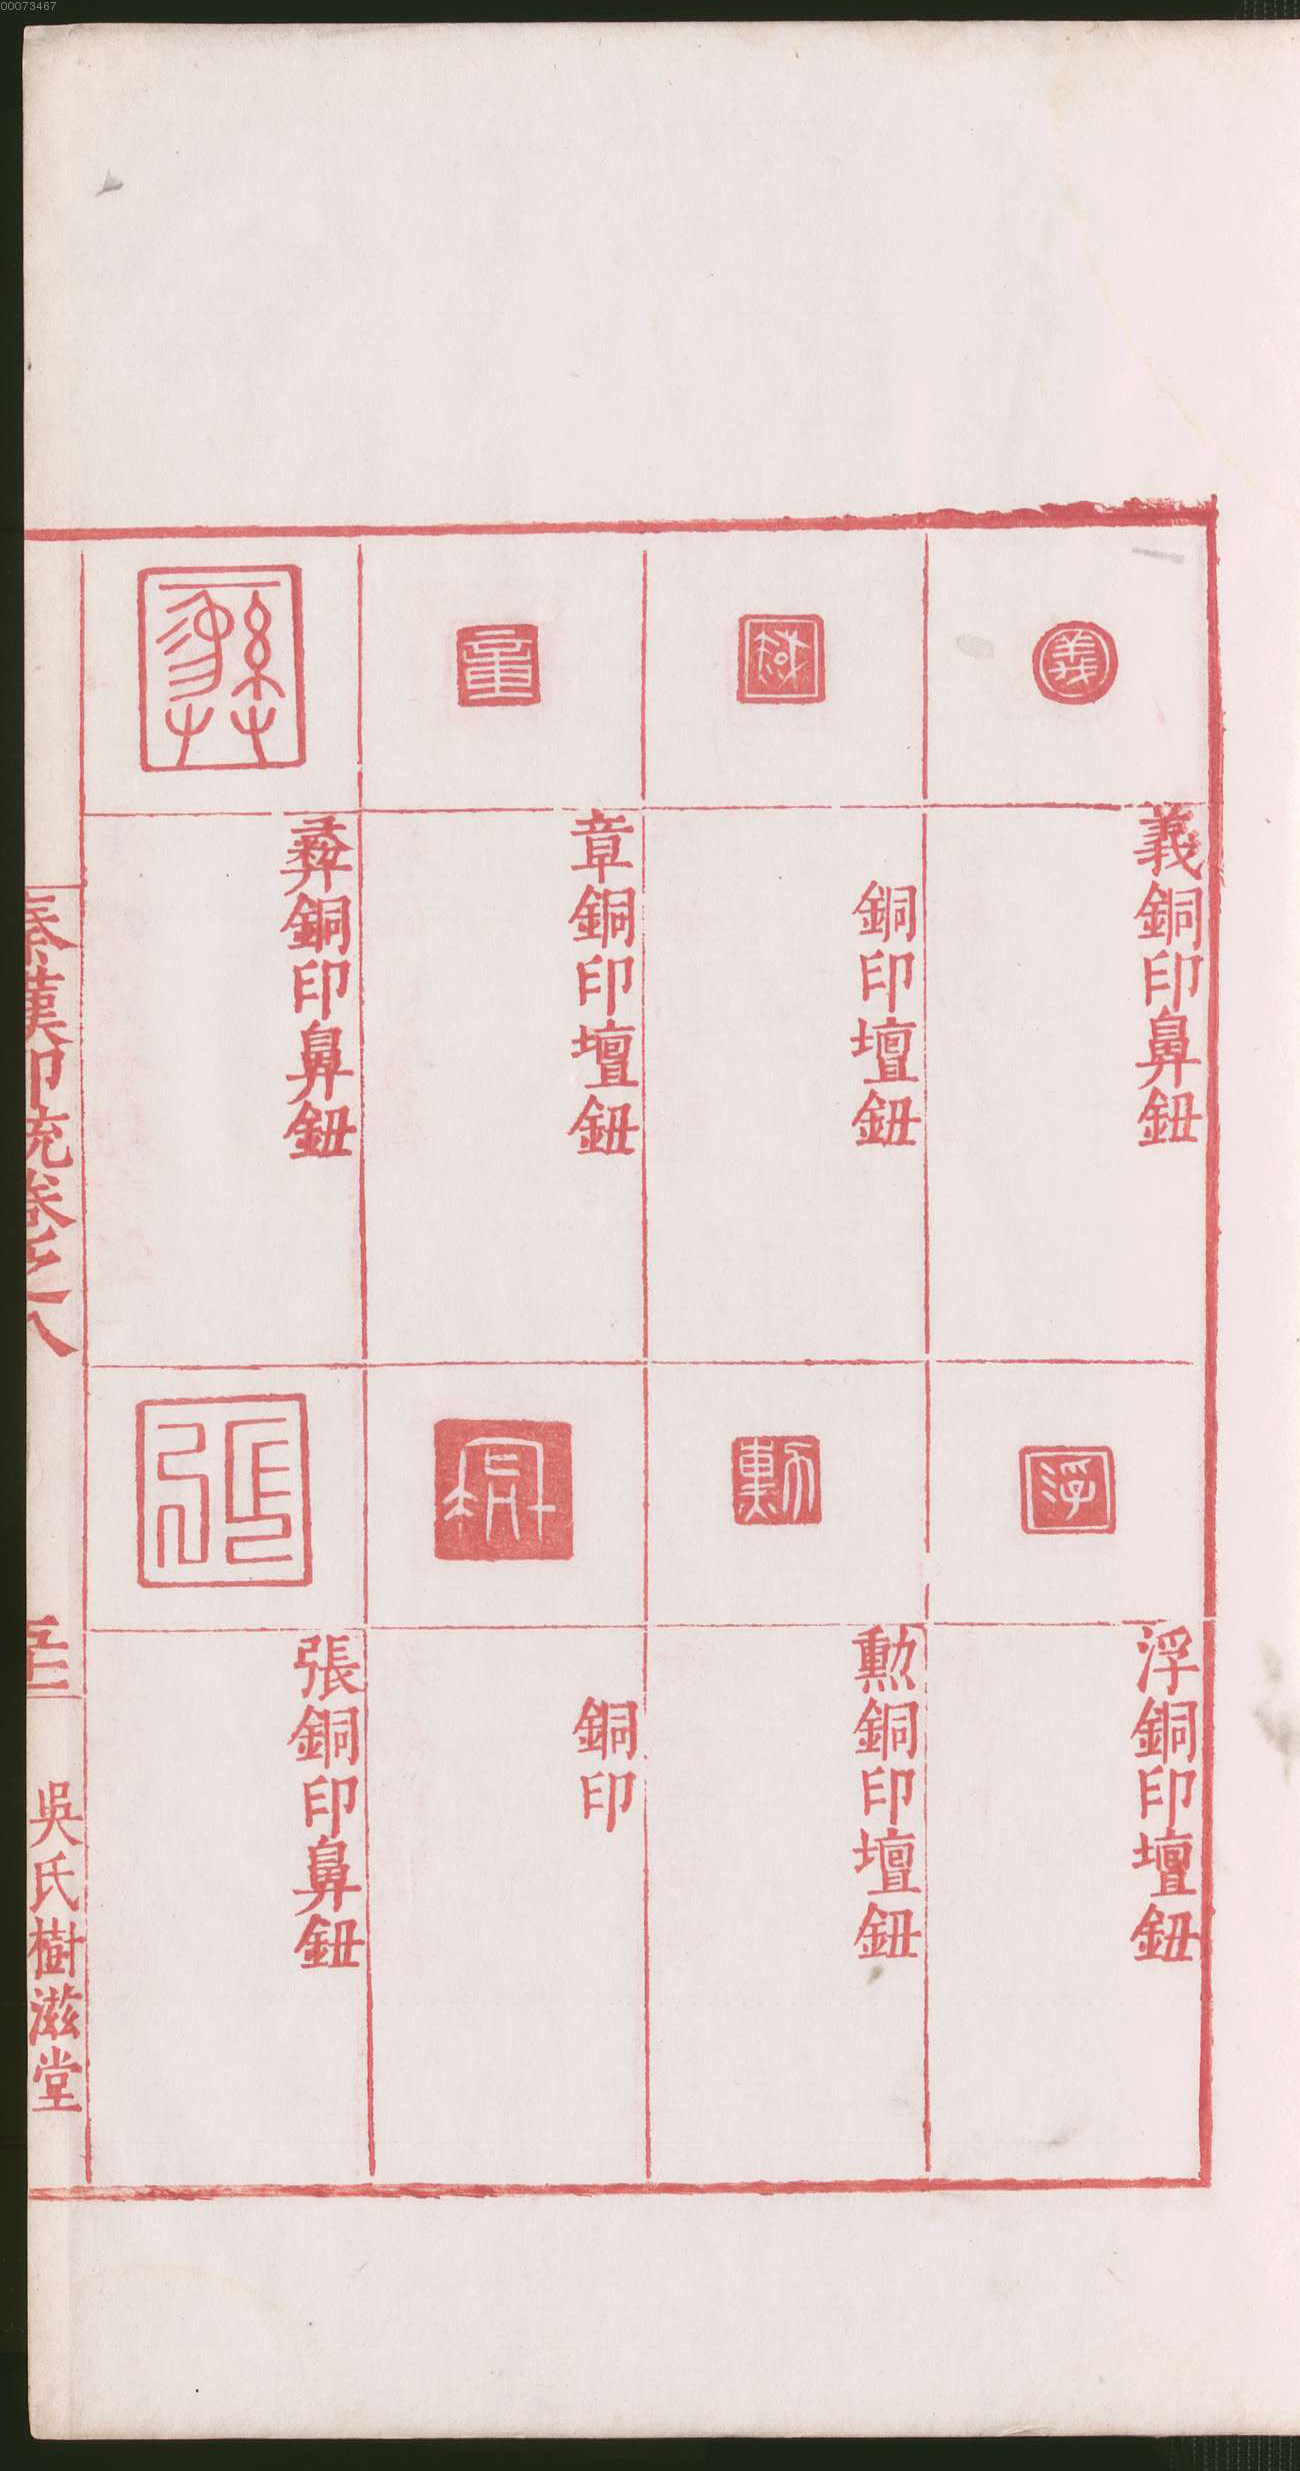 00073467
義銅印鼻鈕
銅印壇鈕
章銅印壇鈕
彞銅印鼻鈕
浮銅印壇鈕
勲銅印壇鈕
銅印
張銅印鼻鈕
秦漢印統卷之八
吳氏樹滋堂